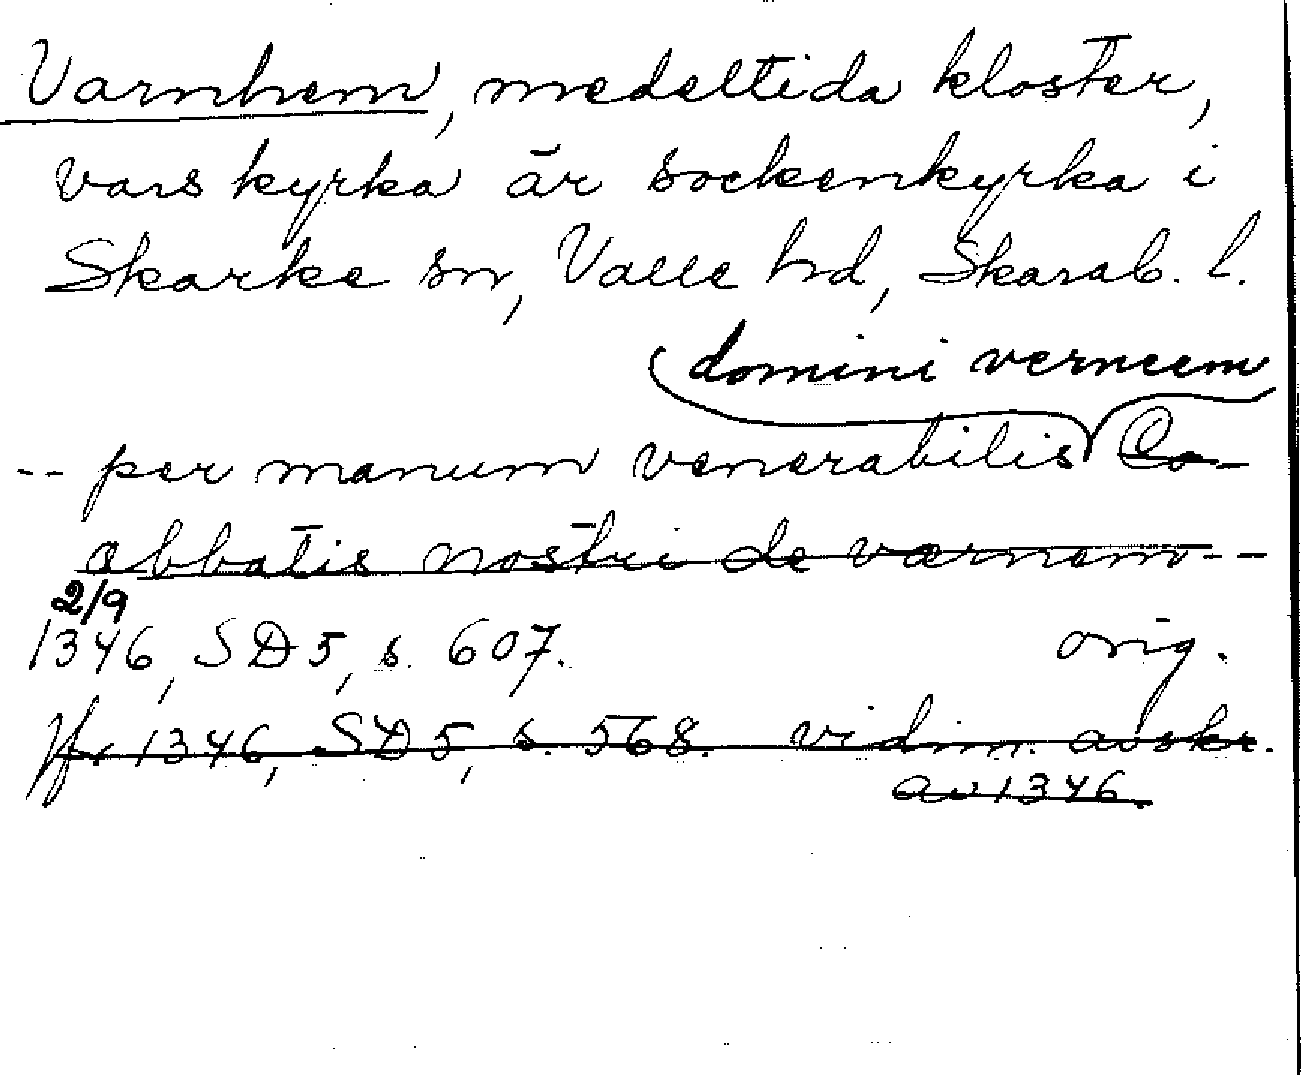 Varnhem, medeltida kloster,
vars kyrka är sockenkyrka i
Skarke sn, Valle hd, Skarab. l.
domini verneem
-- per manum venerabilis Co-
abbatis nostri de værnem --
2/9
1346, SD 5, s. 607. orig.
Jfr 1346, SD 5, s. 568. vidim. avskr.
av 1346.